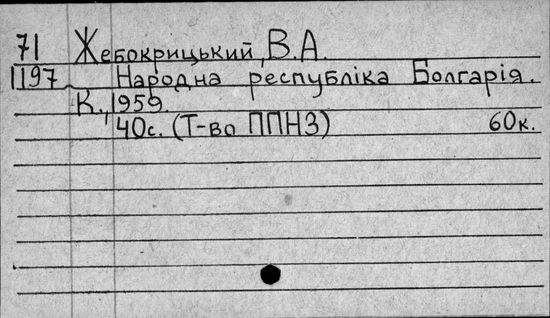 71 Жебокрицький, В.А.
1197 Народна республіка Болгарія.
К., 1959.
40с. (Т-во ППНЗ) 60к.